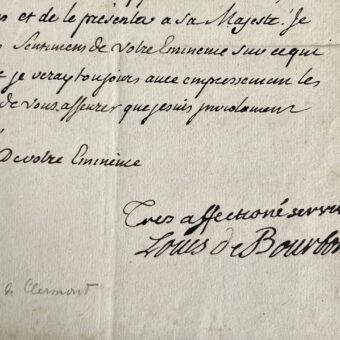 et de le presenter a sa Majesté. Je
sentimens de Votre Eminence sur ce qui
je veray toujours avec empressement les
de vous asseurer que je suis
De votre Eminence
Tres affectioné servi
Louis de Bourbon
de Clermont